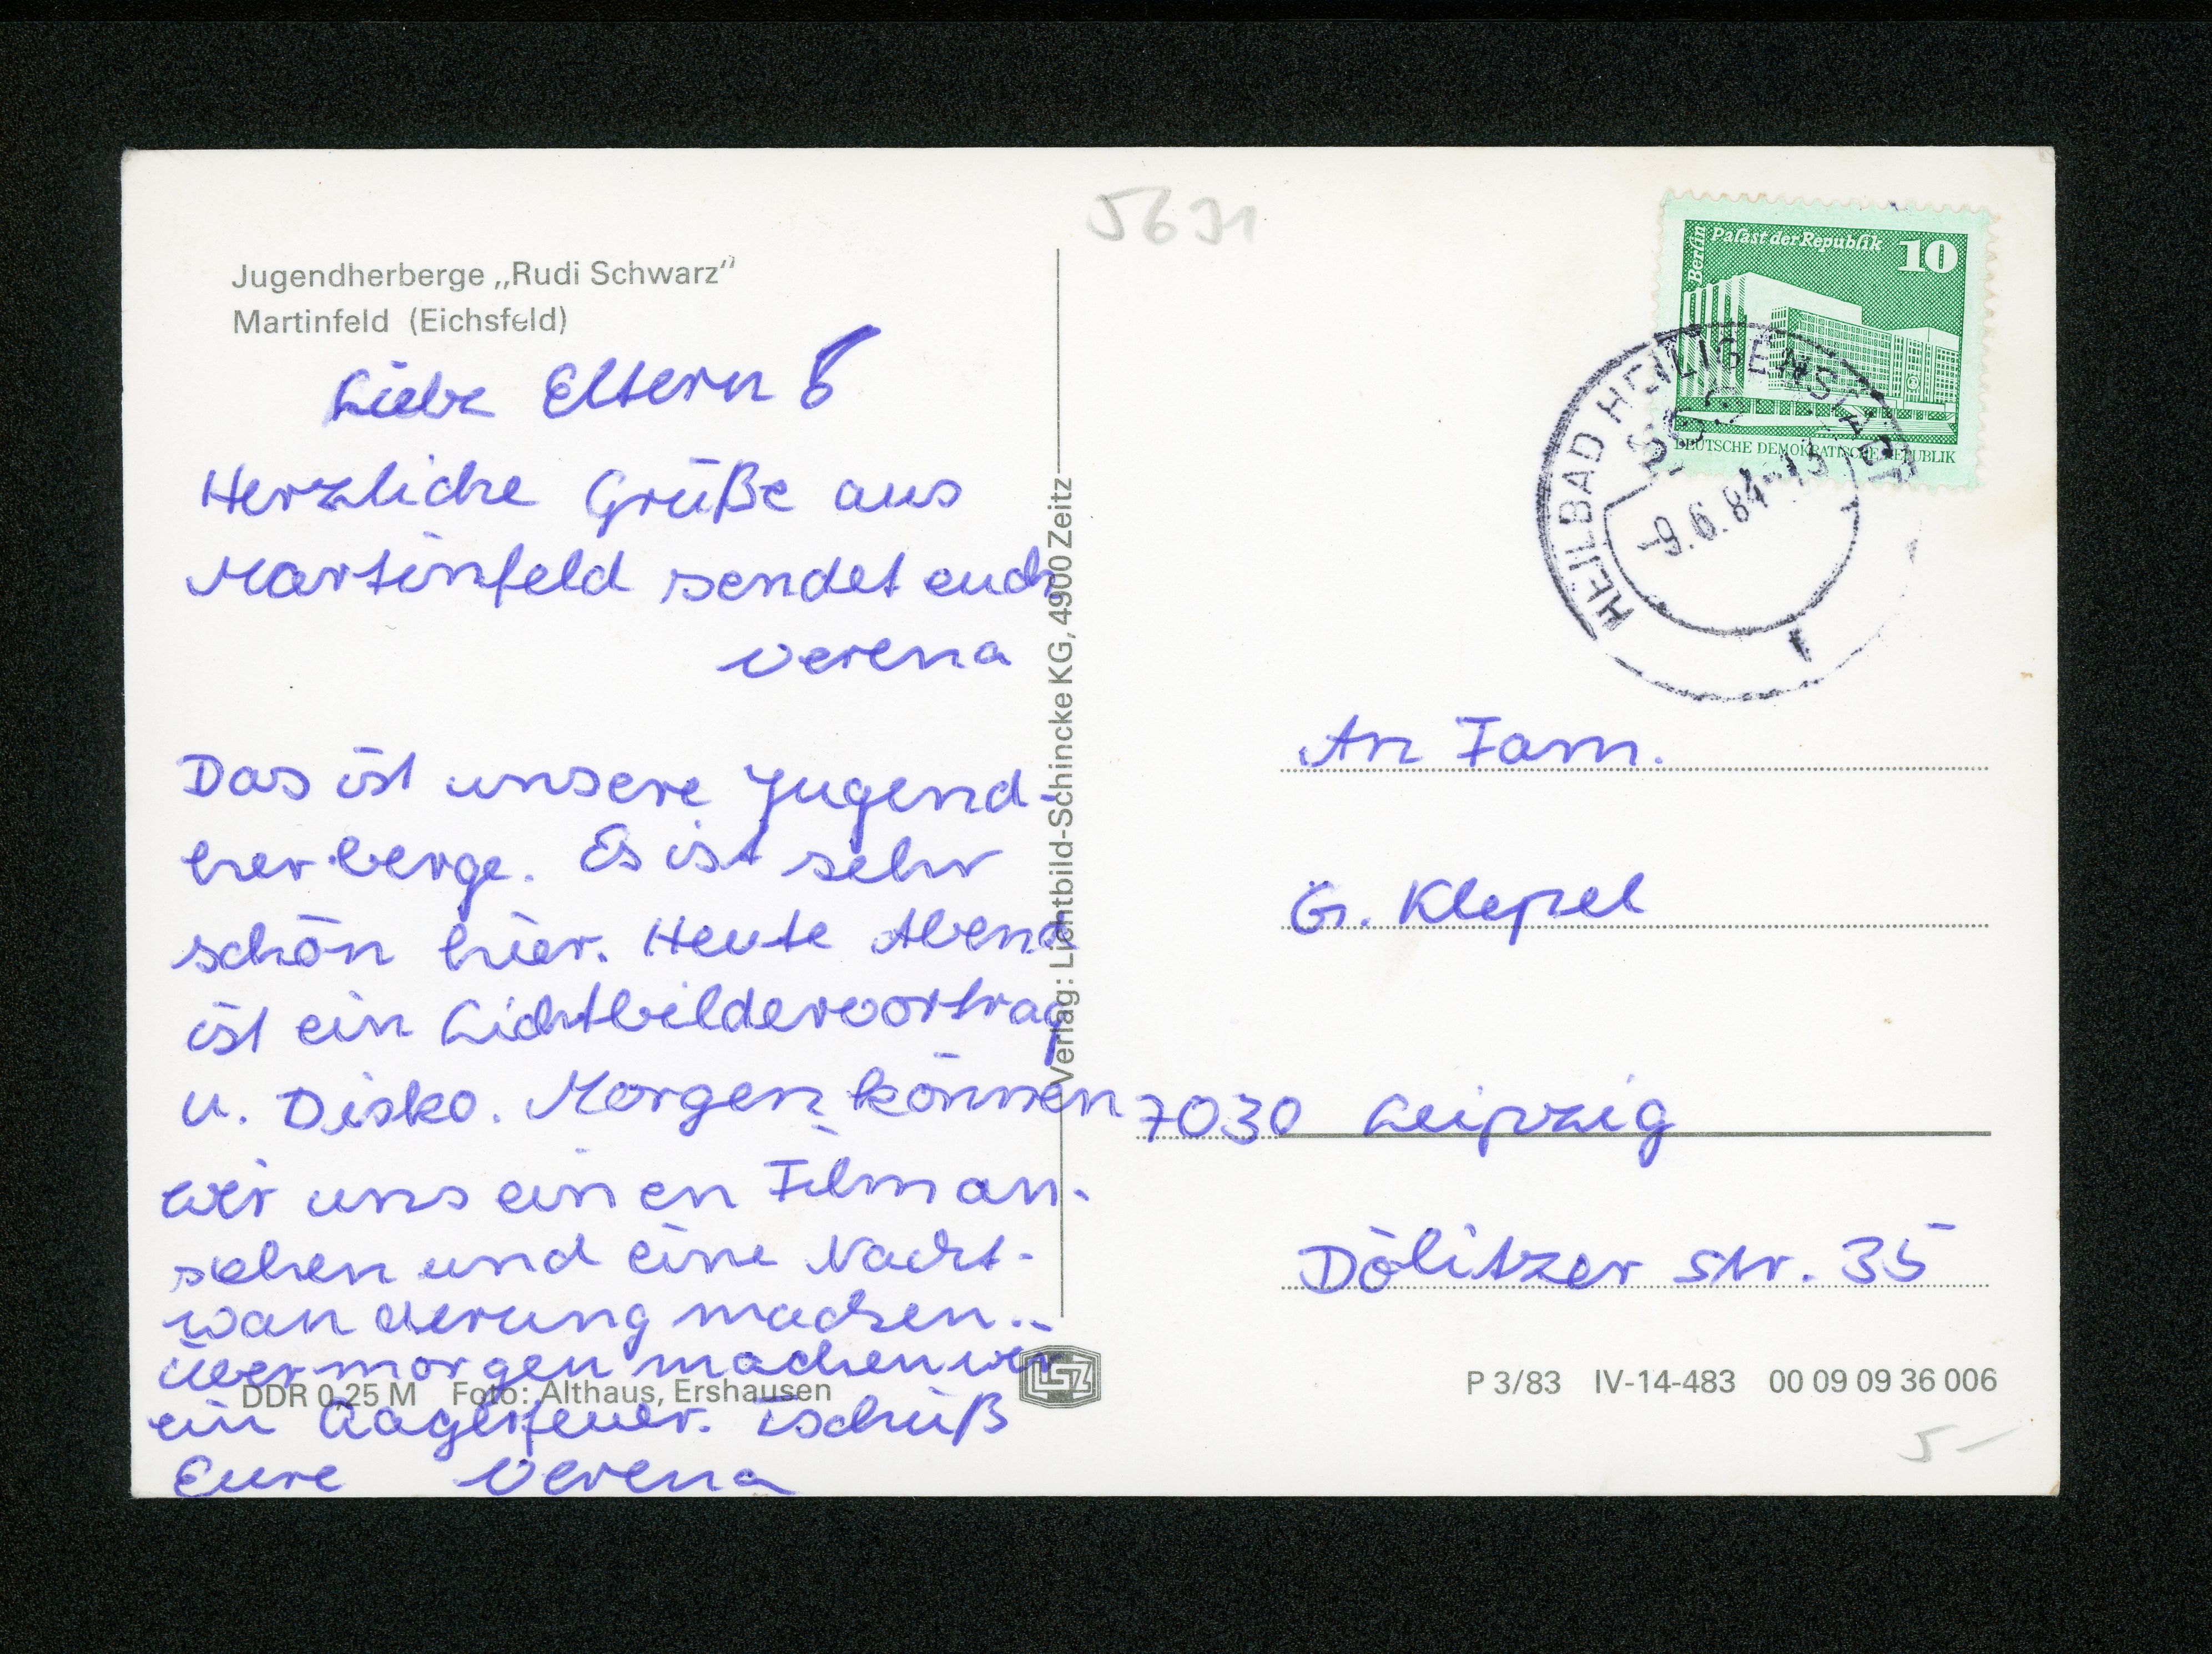 Jugendherberge „Rudi Schwarz“
Martinfeld (Eichsfeld)
Liebe Eltern!
Herzliche Grüße aus
Martinfeld sendet euch
Verena
Das ist unsere Jugend-
herberge. Es ist sehr
schön hier. Heute Abend
ist ein Lichtbildervortrag
u. Disko. Morgen können
wir uns einen Film an-
sehen und eine Nacht-
wanderung machen..
übermorgen machen wir
ein Lagerfeuer. Tschüß
Eure Verena
DDR 0,25 M Foto: Althaus, Ershausen
Verlag: Lichtbild-Schincke KG, 4900 Zeitz
LSZ
5631
Berlin
Palast der Republik 10
DEUTSCHE DEMOKRATISCHE REPUBLIK
HEILBAD HEILIGENSTADT
-9.6.84-13
1
An Fam.
G. Klepel
7030 Leipzig
Dölitzer Str. 35
P 3/83 IV-14-483 00 09 09 36 006
5-